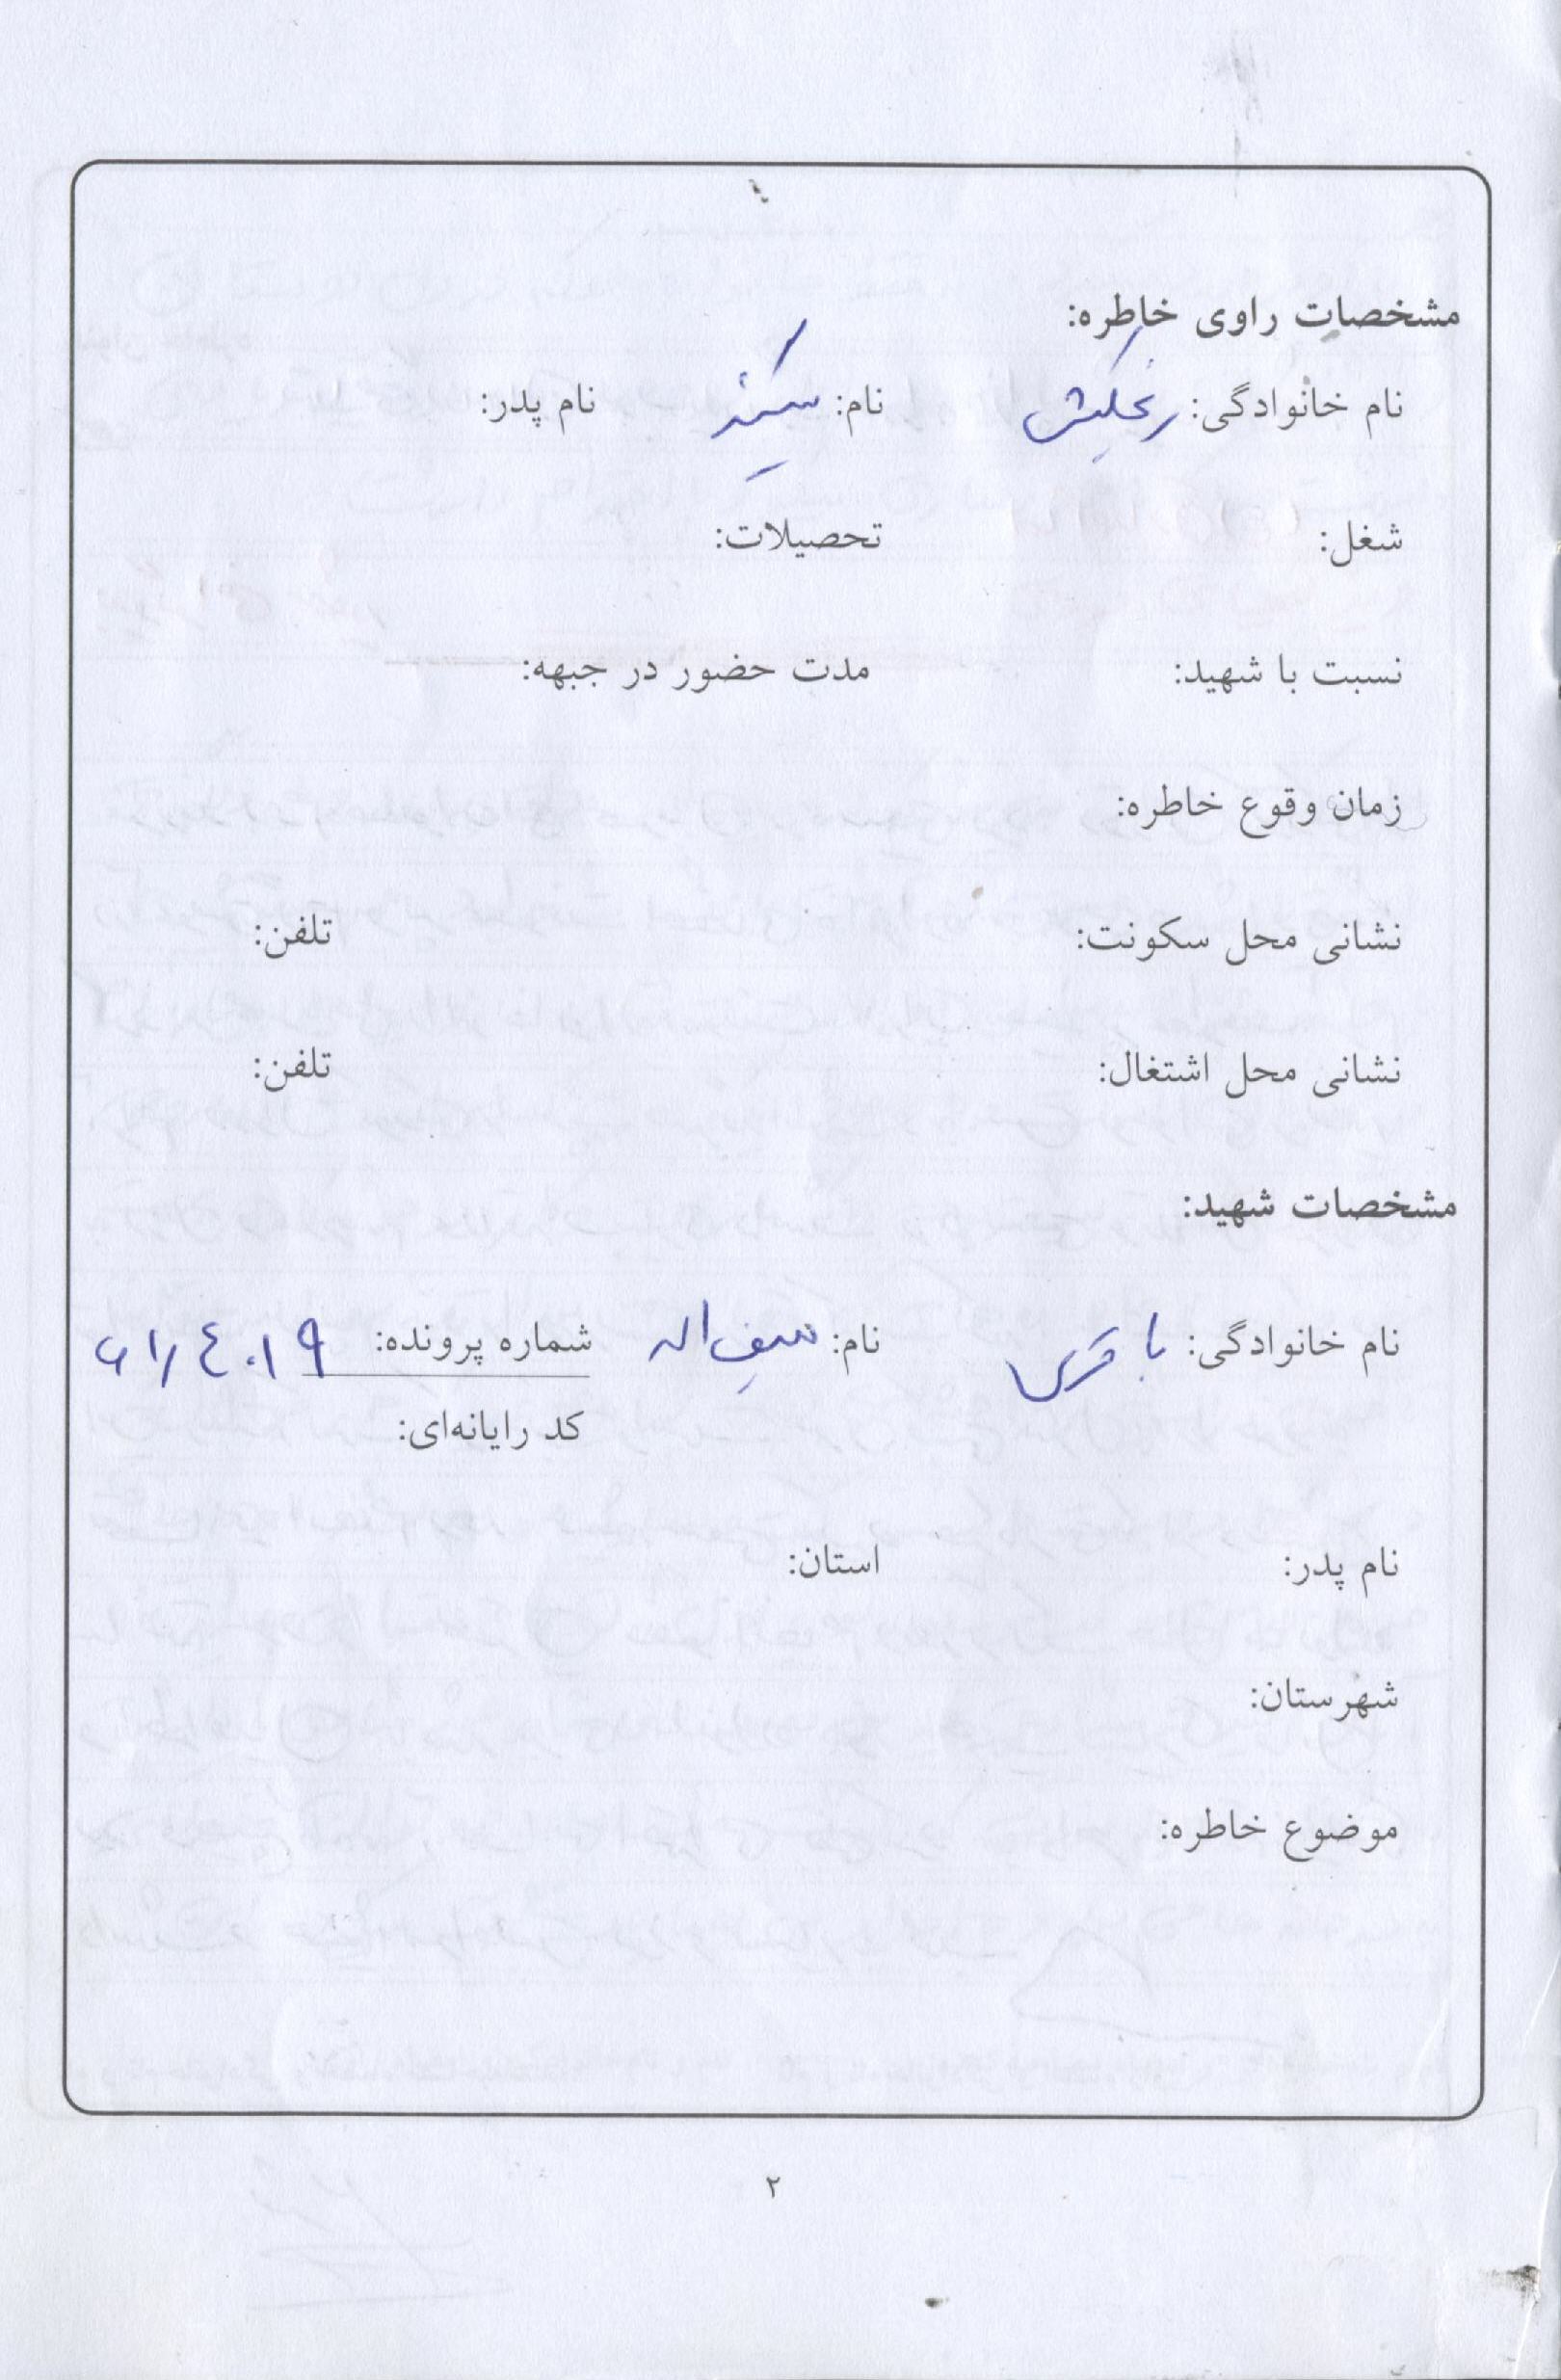 مشخصات راوی خاطره:
نام خانوادگی: زنجکش نام: سکینه نام پدر:
شغل: تحصیلات:
نسبت با شهید: مدت حضور در جبهه:
زمان وقوع خاطره:
نشانی محل سکونت: تلفن:
نشانی محل اشتغال: تلفن:
مشخصات شهید:
نام خانوادگی: باقری نام: سیف اله شماره پرونده:
کد رایانه‌ای:
نام پدر: استان:
شهرستان:
موضوع خاطره:
۲